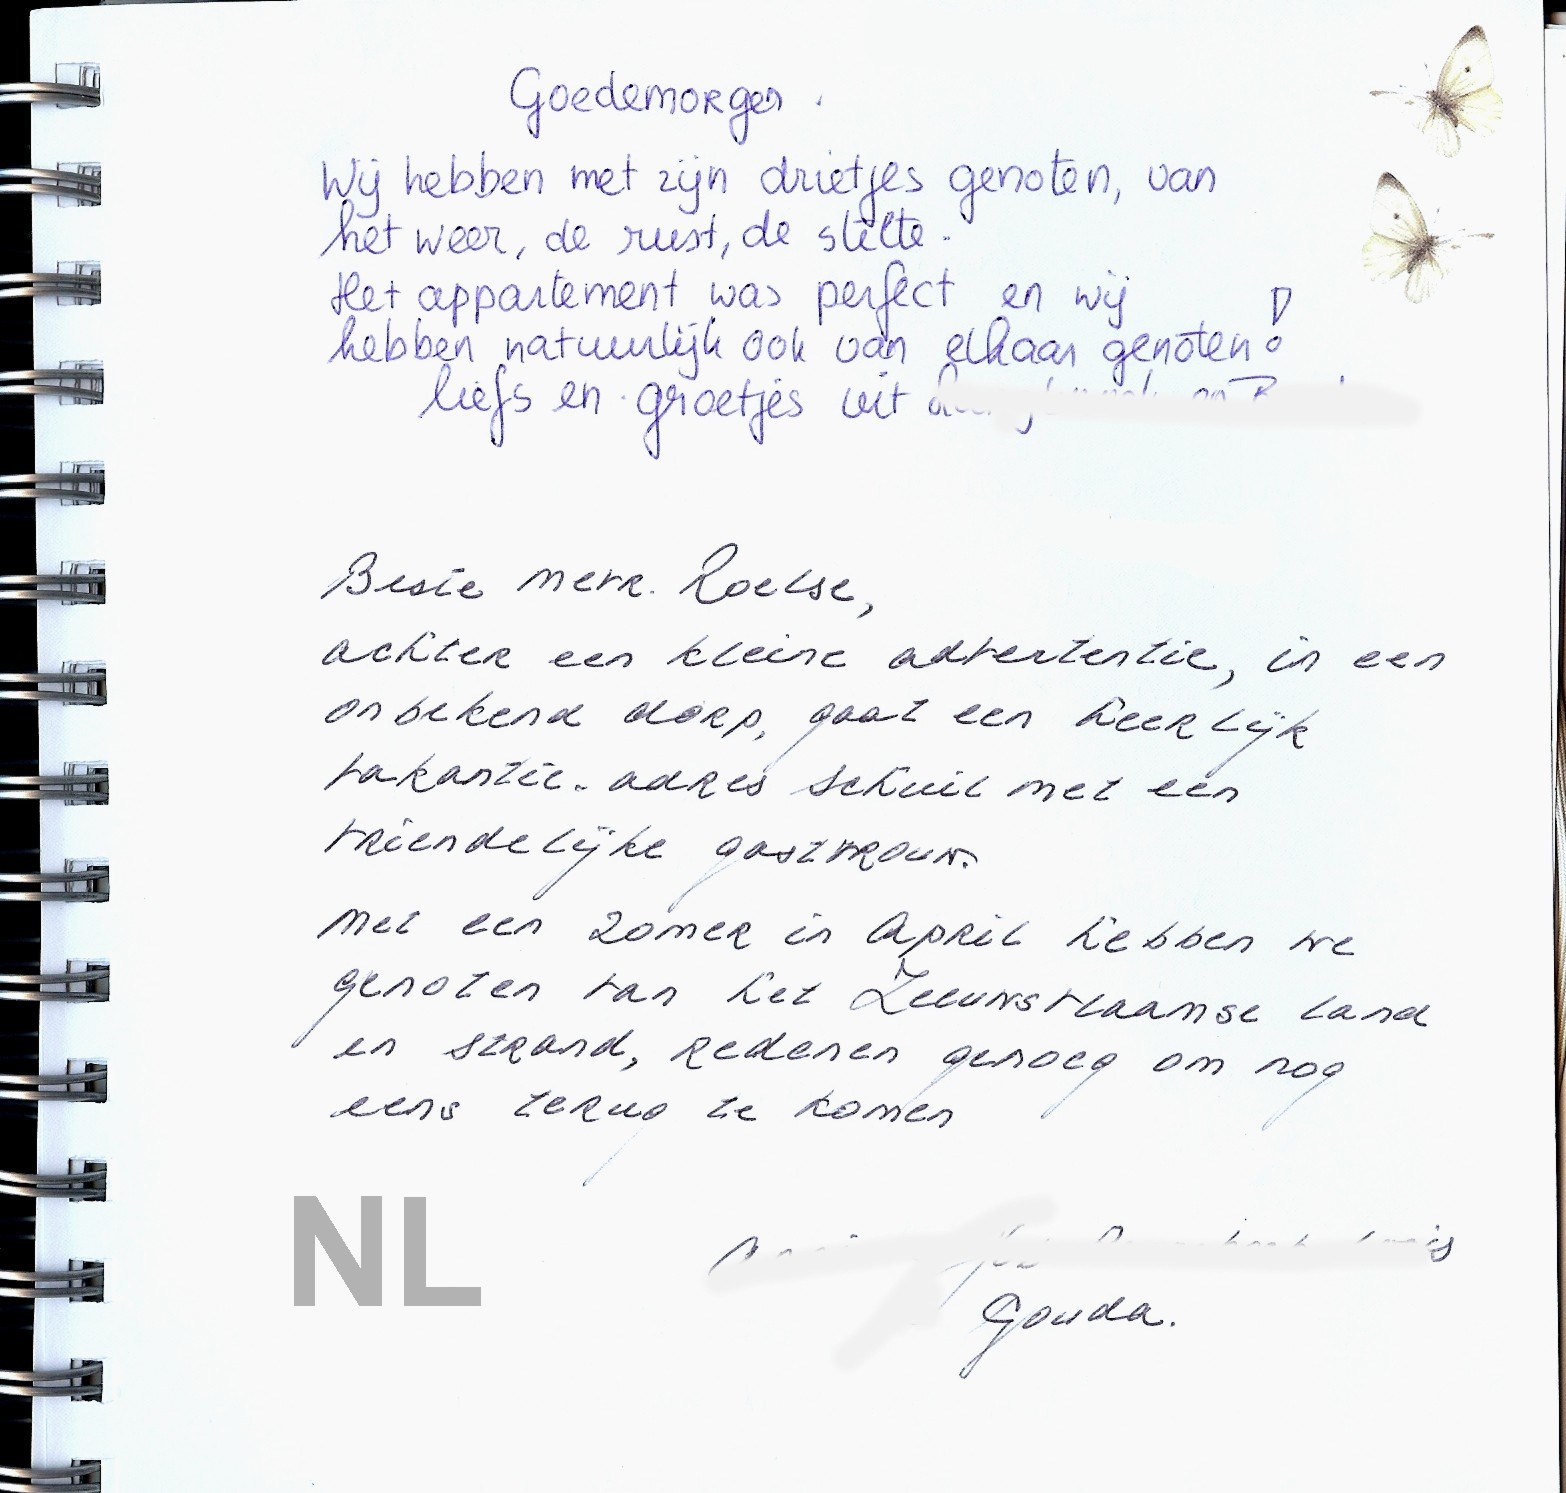 Goedemorgen.
Wij hebben met zijn drietjes genoten, van
het weer, de rust, de stilte.
Het appartement was perfect en wij
hebben natuurlijk ook van elkaar genoten!
liefs en groetjes uit
Beste mevr. Roelse,
achter een kleine advertentie, in een
onbekend dorp, gaat een heerlijk
vakantie-adres schuil met een
vriendelijke gastvrouw.
Met een zomer in April hebben we
genoten van het Zeeuwsvlaamse land
en strand, redenen genoeg om nog
eens terug te komen
NL
Gouda.